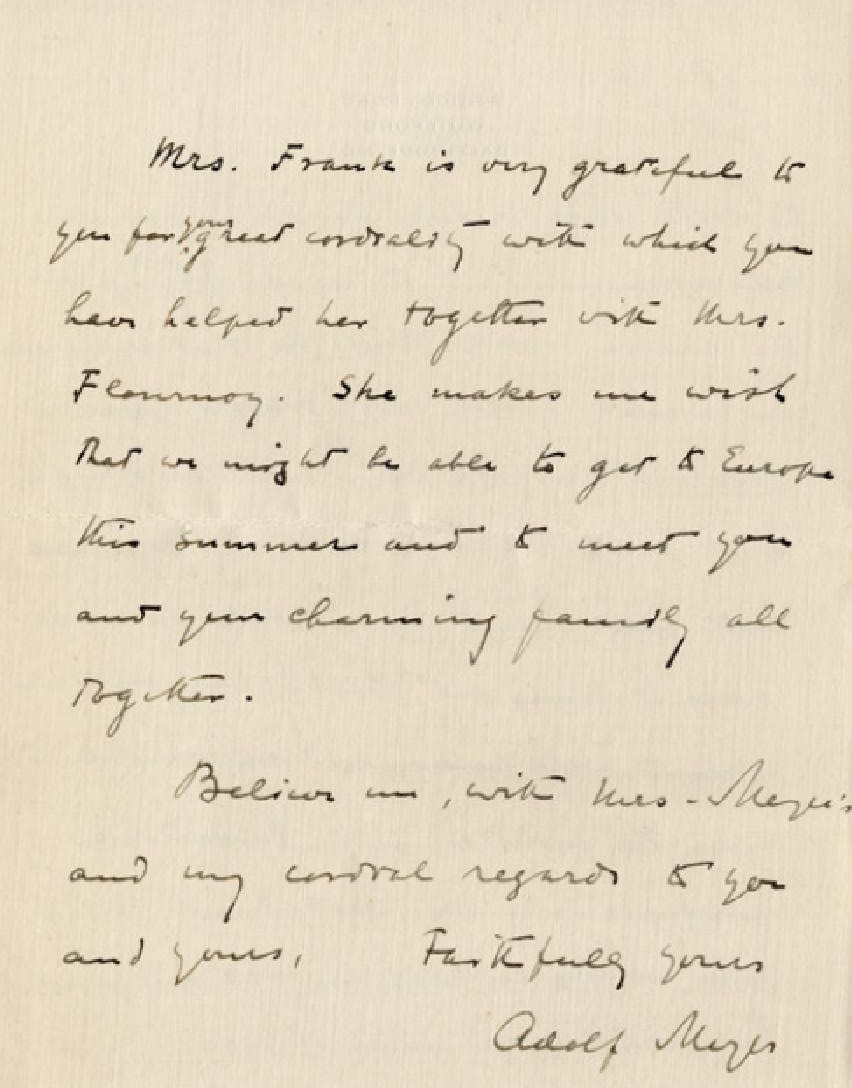 Mrs. Frank is very grateful to
you for your great cordiality with which you
have helped her together with Mrs.
Flournoy. She makes me wish
that we might be able to get to Europe
this summer and to meet you
and your charming family all
together.
Believe me, with Mrs. Meyer's
and my cordial regards to you
and yours, Faithfully yours
Adolf Meyer